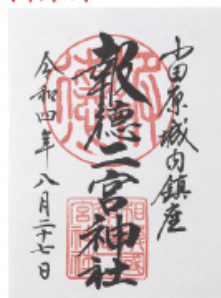 小田原城内鎮座
報徳二宮神社
令和四年八月二十七日